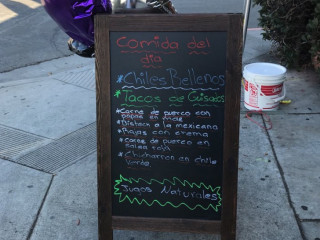 Comida del
dia
*Chiles Rellenos
*Tacos de Guisados
*Carne de puerco con
papas en
*Bisteck a la mexicana
*Rajas con crema
*Carne de puerco en
salsa roja
*Chicharron en chile
verde
Jugos Naturales